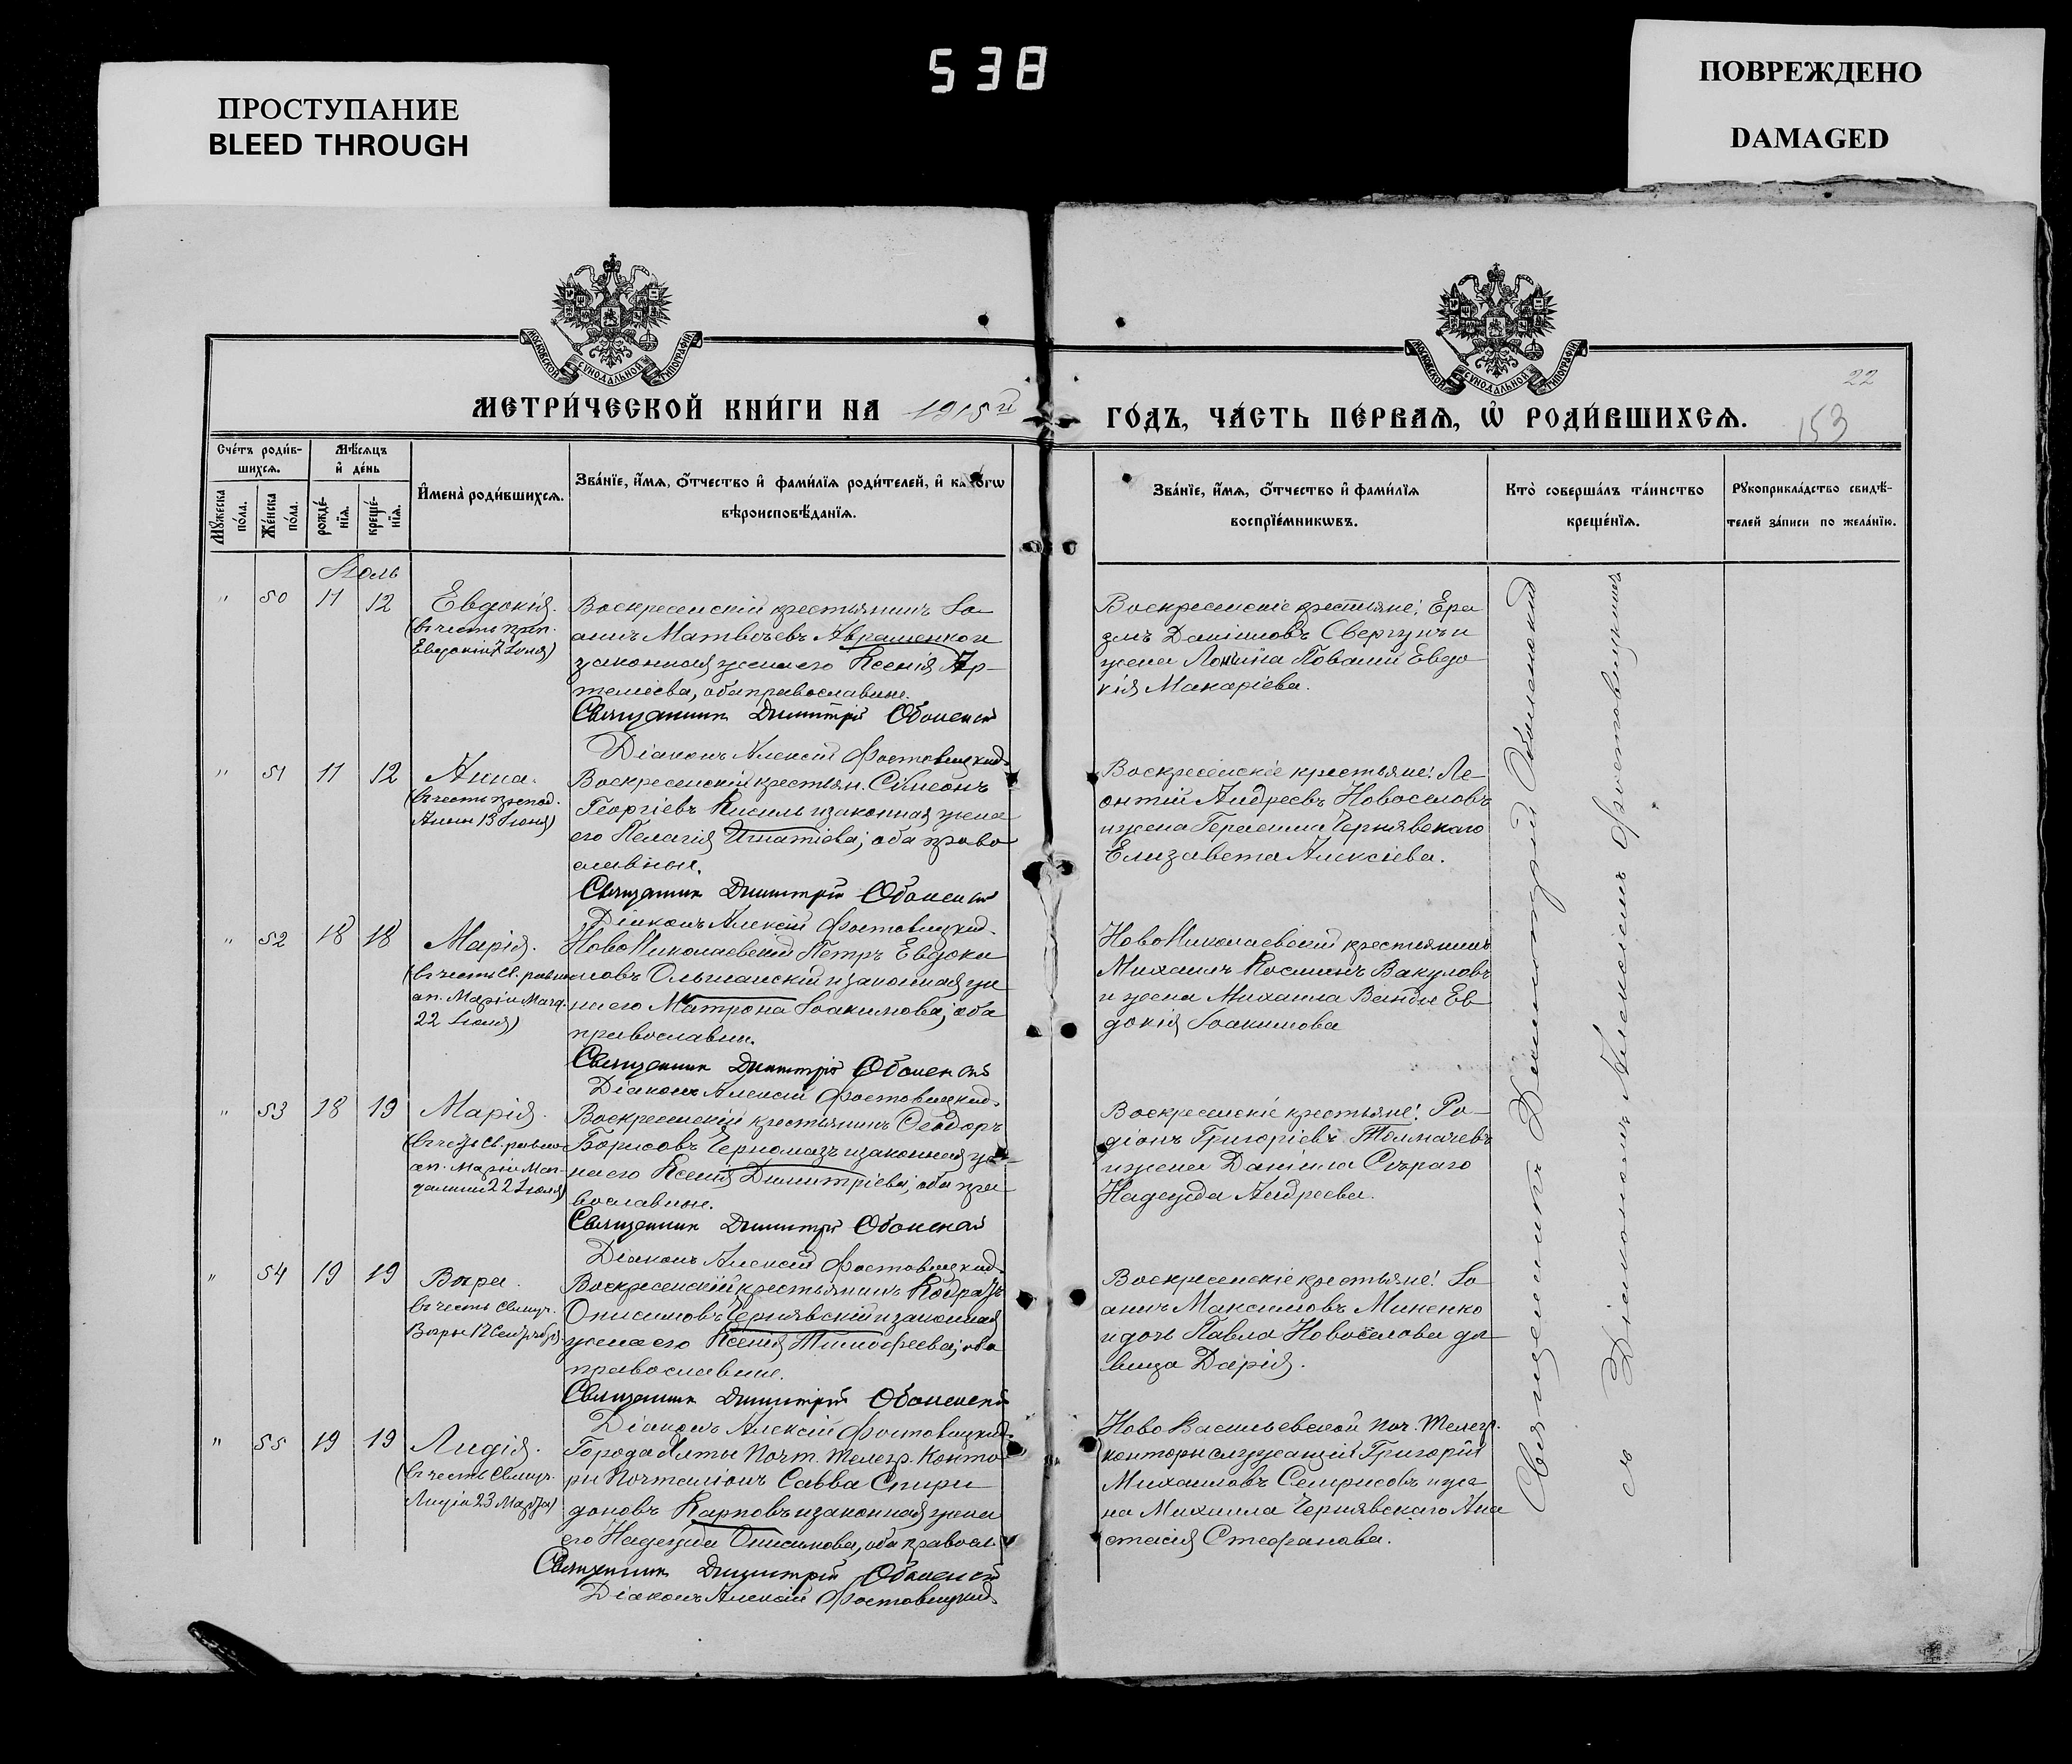 538
ПРОСТУПАНИЕ
BLEED THROUGH
ПОВРЕЖДЕНО
DAMAGED
МОСКОВСКОЙ СѴНОДАЛЬНОЙ ТИПОГРАФІИ
МОСКОВСКОЙ СѴНОДАЛЬНОЙ ТИПОГРАФІИ
22
153
МЕТРИ́ЧЕСКОЙ КНИ́ГИ НА 1915й ГО́ДЪ, ЧА́СТЬ ПЕ́РВАѦ, Ѡ҆ РОДИ́ВШИХСѦ.
Сче́тъ роди́в-
шихсѧ.
Мѣ́сѧцъ
и҆ де́нь
Мꙋ́жеска
по́ла.
Же́нска
по́ла.
рожде́-
нїѧ.
креще́-
нїѧ.
И҆мена̀ роди́вшихсѧ.
Зва́нїе, и҆́мѧ, о҆́тчество и҆ фами́лїѧ роди́телей, и҆ како́гѡ
вѣроисповѣ́данїѧ.
Зва́нїе, и҆́мѧ, о҆́тчество и҆ фами́лїѧ
воспрїе́мникѡвъ.
Кто̀ соверша́лъ та́инство
креще́нїѧ.
Рꙋкоприкла́дство свидѣ́-
телей за́писи по жела́нїю.
Іюль
" 50 11 12
Евдокія.
(въ честь преп.
Евдокіи 7 Іюля)
Воскресенскій крестьянинъ Іо-
аннъ Матвѣевъ Авраменко и
законная жена его Ксенія Ар-
темьева, оба православные.
Священникъ Димитрій Оболенскій
Діаконъ Алексій Фостовицкій.
Воскресенскіе крестьяне: Ера
змъ Даніиловъ Свергунъ и
жена Логина Повалій Евдо
кія Макаріева.
" 51 11 12
Анна.
(въ честь препод.
Анны 13 Іюня)
Воскресенскій крестьян. Сѵмеонъ
Георгіевъ Кисиль и законная жена
его Пелагія Игнатіева; оба право
славные.
Священникъ Димитрій Оболенскій
Діаконъ Алексій Фостовицкій.
Воскресенскіе крестьяне: Ле-
онтій Андреевъ Новоселовъ
и жена Герасима Чернявскаго
Елизавета Алексіева.
" 52 18 18
Марія.
(въ честь св. равно
ап. Маріи Магд.
22 Іюля)
Ново Николаевскій Петръ Евдоки
мовъ Ольшанскій и законная же
на его Матрона Іоакимова; оба
православны.
Священникъ Димитрій Оболенскій
Діаконъ Алексій Фостовицкій.
Ново Николаевскій крестьянинъ
Михаилъ Косминъ Вакуловъ
и жена Михаила Евдокія Іоакимова
" 53 18 19
Марія.
(въ честь св. равно-
ап. Маріи Маг-
далины 22 Іюля)
Воскресенскій крестьянинъ Ѳеодоръ
Борисовъ Черномазъ и законная же-
на его Ксенія Димитріева; оба пра
вославные.
Священникъ Димитрій Оболенскій
Діаконъ Алексій Фостовицкій.
Воскресенскіе крестьяне: Ро-
діонъ Григоріевъ Толмачевъ
и жена Даніила Сѣраго
Надежда Андреева.
" 54 19 19
Вѣра.
въ честь святыя
Вѣры 17 Сентября.
Воскресенскій крестьянинъ Кодратъ
Онисимовъ Чернявскій и законная
жена его Ксенія Тимофеева; оба
православные.
Священникъ Димитрій Оболенскій
Діаконъ Алексій Фостовицкій.
Воскресенскіе крестьяне: Іо
аннъ Максимовъ Миненко
и дочь Павла Новоселова дѣ
вица Дарія.
" 55 19 19
Лидія.
(въ честь святыя
Лидіи 23 Марта)
Города Ялты Почт. Телегр. Конто
ры Почталіонъ Савва Спири
доновъ Карповъ и законная жена
его Надежда Онисимова, оба правосл.
Священникъ Димитрій Оболенскій
Діаконъ Алексій Фостовицкій.
Ново Васильевской поч. Телегр.
конторы служащій Григорій
Михаиловъ и же
на Михаила Чернявскаго Ана
стасія Стефанова.
Священникъ Димитрій Оболенскій
съ Діакономъ Алексіемъ Фостовицкимъ